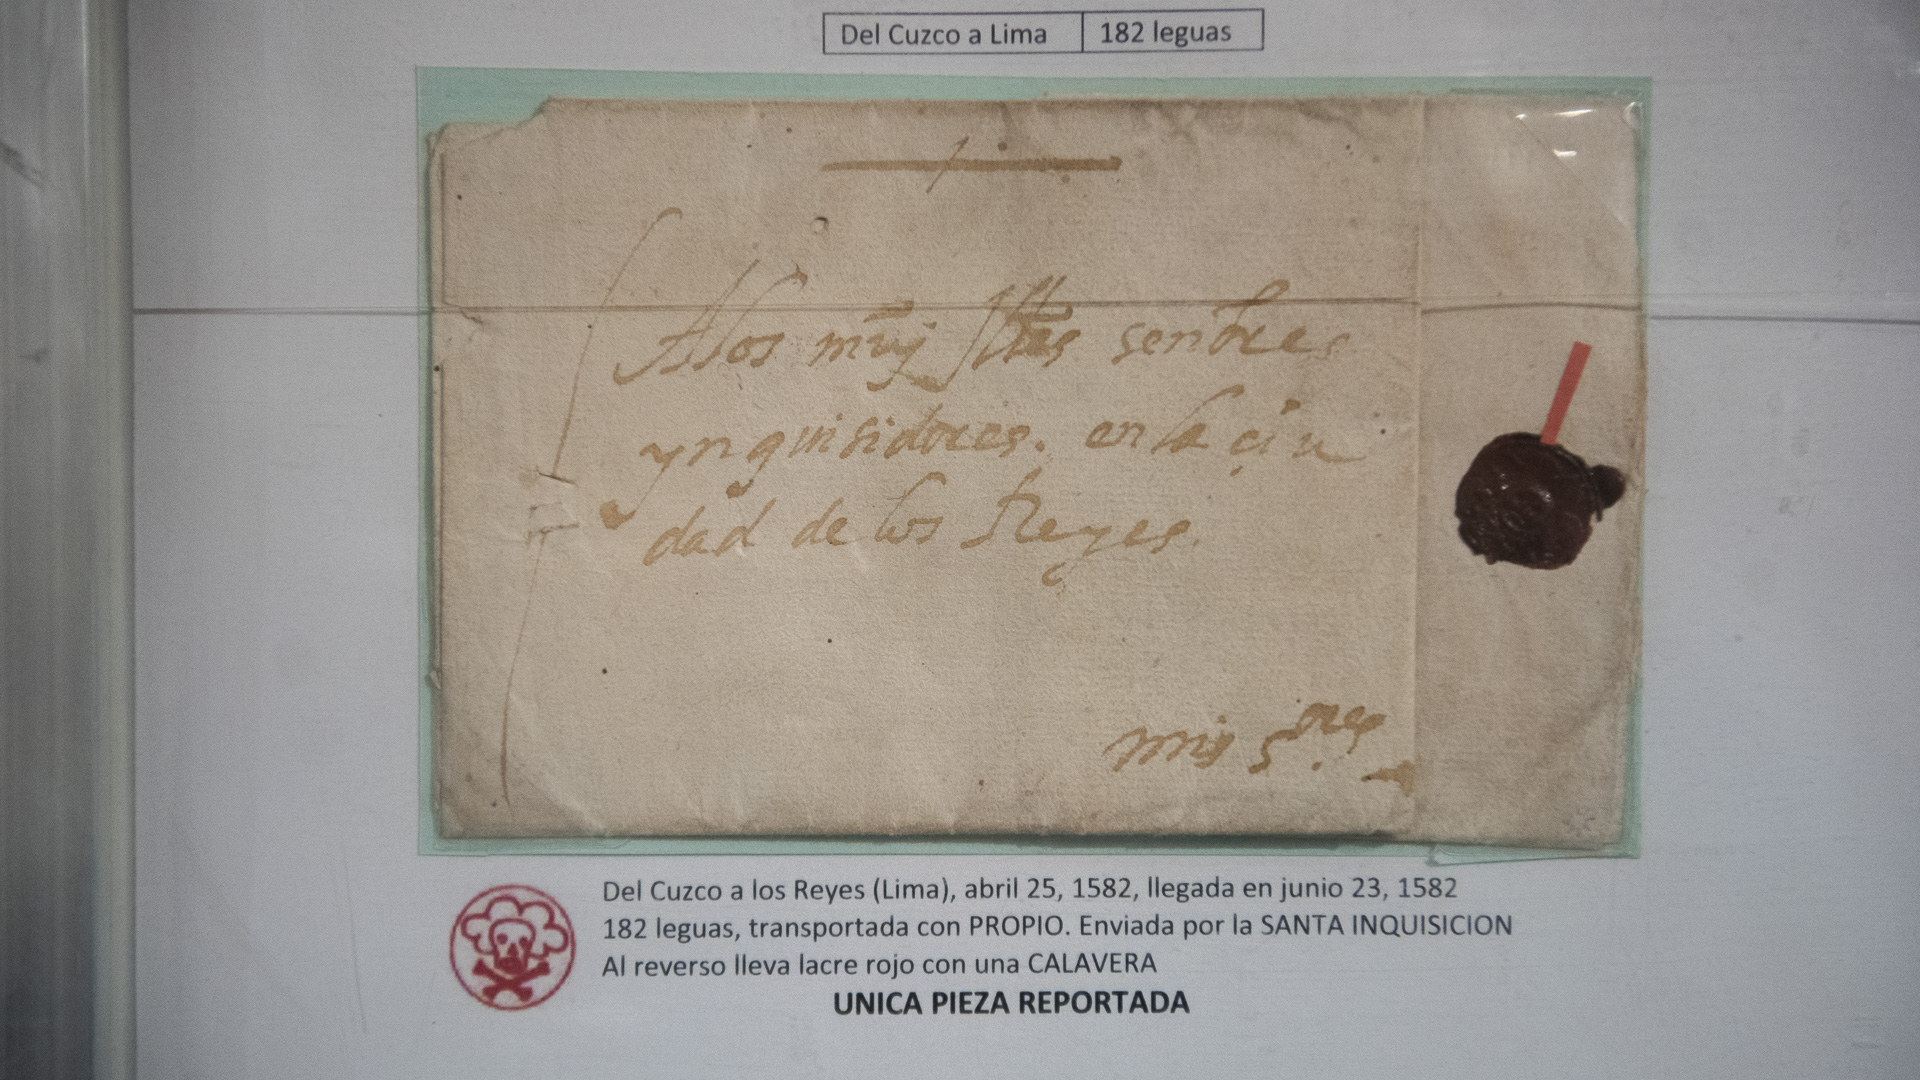 Del Cuzco a Lima 182 leguas
A los muy Illes senores
ynquisidores. en la ciu
dad de los Reyes.
mis s.ores
Del Cuzco a los Reyes (Lima), abril 25, 1582, llegada en junio 23, 1582
182 leguas, transportada con PROPIO. Enviada por la SANTA INQUISICION
Al reverso lleva lacre rojo con una CALAVERA
UNICA PIEZA REPORTADA